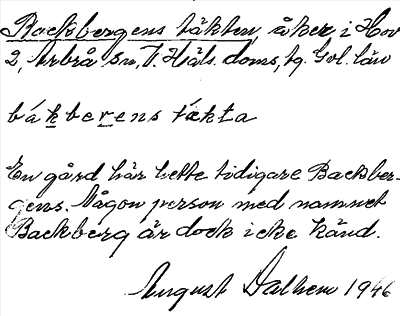 Backbergens täkten, åker, i Hov
2, Arbrå sn, V. Häls. doms, tg. Gvl. län
bákberens täkta
En gård här hette tidigare Backber-
gens. Någon person med namnet
Backberg är dock icke känd.
August Dalhem 1946